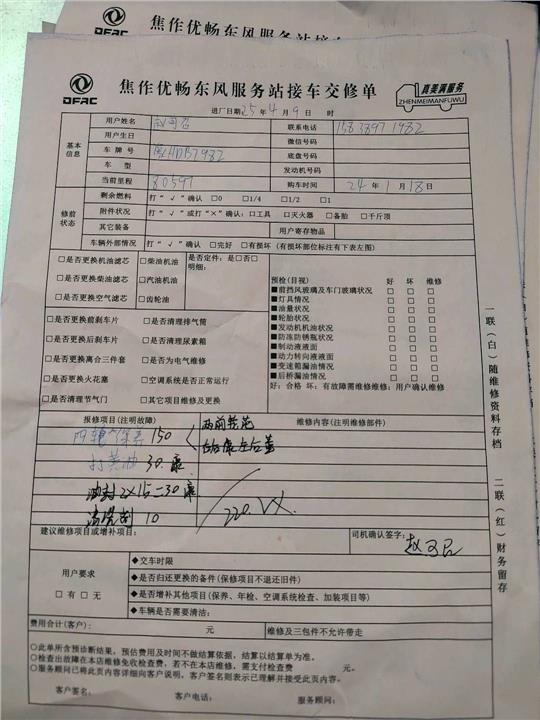 焦作优畅东风服务站接
DFAC
焦作优畅东风服务站接车交修单
DFAC
真美满服务
ZHENMEIMANFUWU
进厂日期25年4月9日 时
基本信息
用户姓名 联系电话 15838971982
用户生日 微信号码
车牌号 豫HDB7982 底盘号码
车型 发动机号码
当前里程 80597 购车时间 24年1月18日
修前状态
剩余燃料 打“√”确认 □0 □1/4 □1/2 □1
附件状况 打“√”或打“×”确认:□工具 □灭火器 □备胎 □千斤顶
其它装备 用户寄存物品
车辆外部情况 打“√”确认 □完好 □有损坏(有损坏部位标注有下表左图)
□是否更换机油滤芯 □柴油机油 是否定件:是□否□
明细:
□是否更换柴油滤芯 □汽油机油
□是否更换空气滤芯 □齿轮油
□是否更换前刹车片 □是否清理排气筒
□是否更换后刹车片 □是否清理尿素箱
□是否更换离合三件套 □是否为电气维修
□是否更换火花塞 □空调系统是否正常运行
□是否清理节气门 □其它项目维修及更换
预检(目视) 好 坏 维修
■前挡风玻璃及车门玻璃状况 □ □ □
■灯具情况 □ □ □
■油量状况 □ □ □
■轮胎状况 □ □ □
■发动机机油状况 □ □ □
■防冻防锈瓶状况 □ □ □
■制动液液面 □ □ □
■动力转向液液面 □ □ □
■变速箱漏油情况 □ □ □
■后桥漏油情况 □ □ □
好:合格 坏:有故障需维修维修:用户确认维修
报修项目(注明故障) 维修内容(注明维修部件)
四轮保养 150
两前轮
打黄油 30.
油封 2×15=30
清洗剂 10
220.
建议维修项目或增补项目:
司机确认签字:
用户要求
□有 □无
◆交车时限
◆是否归还更换的备件(保修项目不退还旧件)
◆是否增补其他项目(保养、年检、空调系统检查、加装项目等)
◆车辆是否需要清洁:
费用合计(客户): 元 维修及三包件不允许带走
○此单所含预诊断结果,预估费用及时间不做结算依据,结算以结算单为准。
○检查出故障在本店维修免收检查费,若不在本店维修,需支付检查费 元。
○服务顾问已将此页内容详细向客户说明,客户签名则表示已理解并接受此页内容。
客户签名: 客户电话: 服务顾问:
一联(白)随维修资料存档
二联(红)财务留存